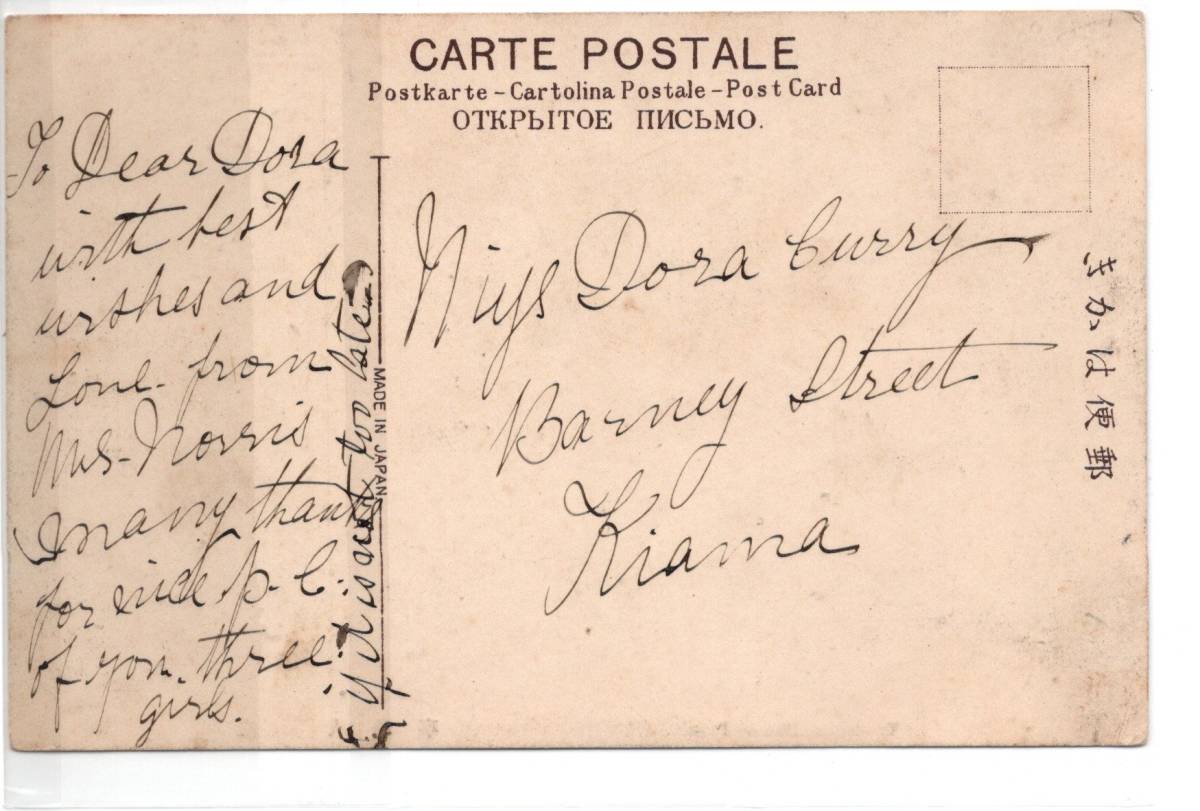 CARTE POSTALE
Postkarte – Cartolina Postale – Post Card
ОТКРЫТОЕ ПИСЬМО.
To Dear Dora
with best
wishes and
Love. from
Mrs. Norris
many thanks
for nice p. C.
of you. three
girls.
if it is not too late
MADE IN JAPAN
Miss Dora Curry
Barney Street
Kiama
郵便はがき